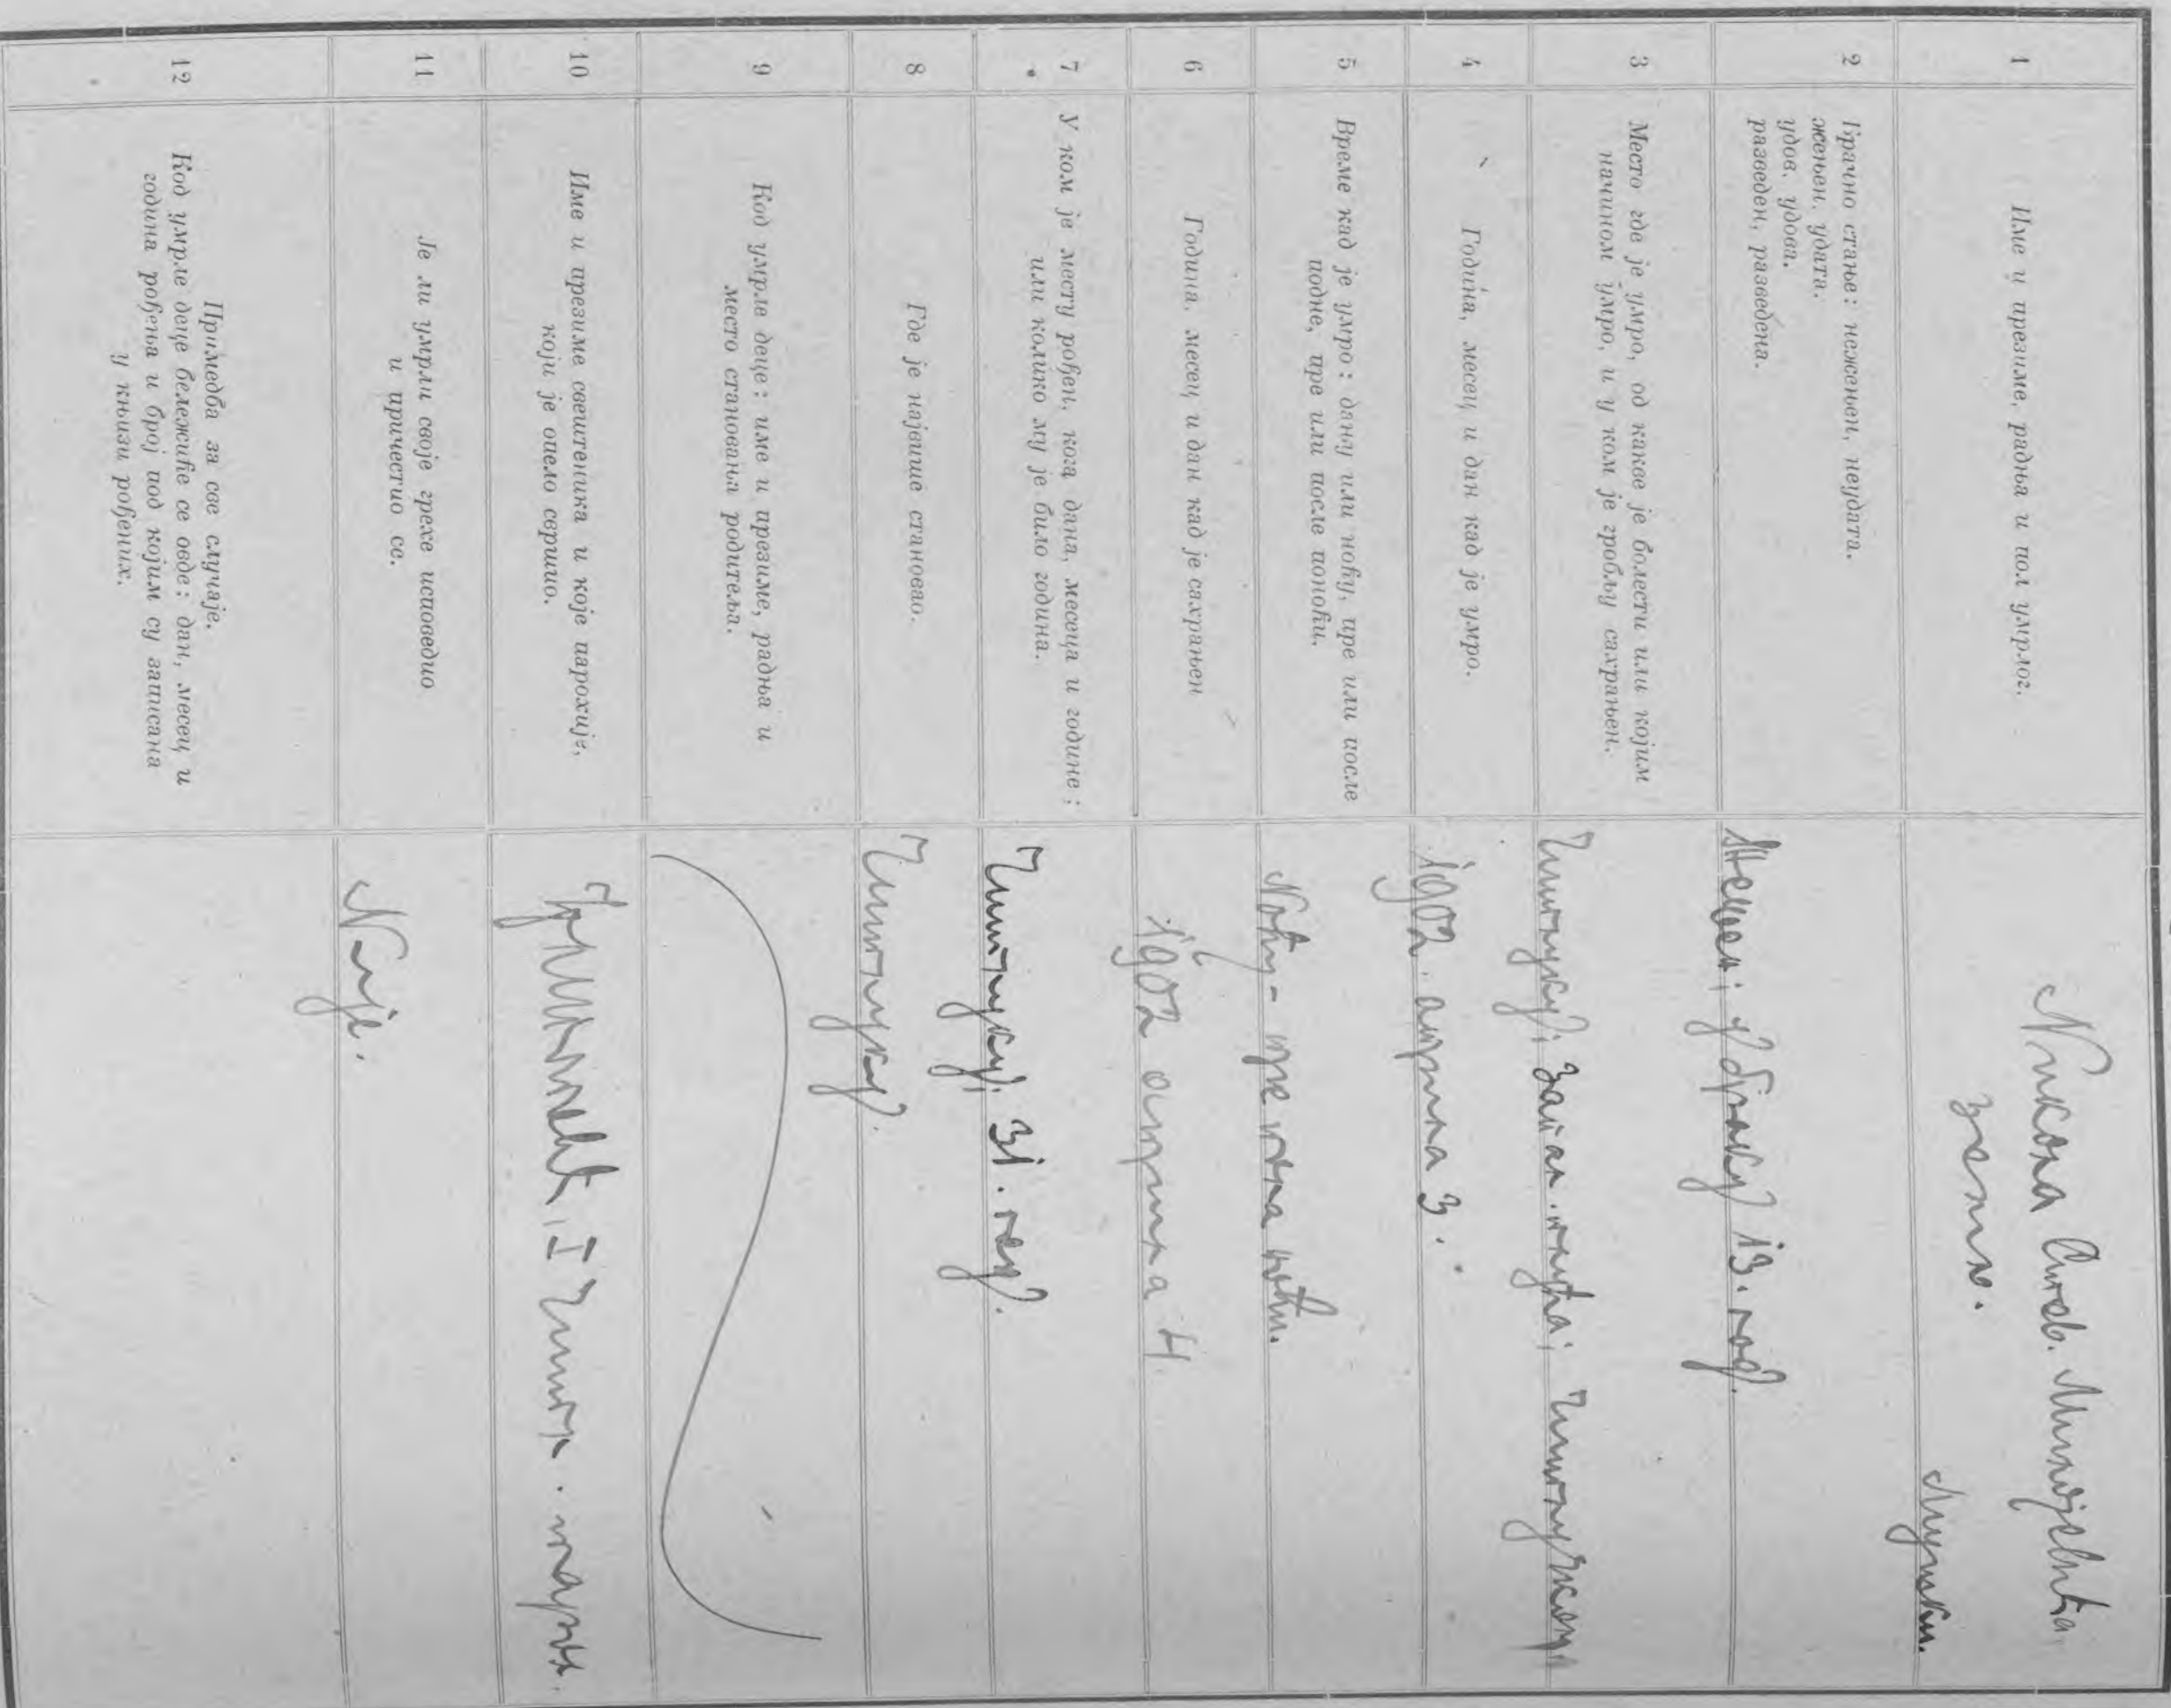 1
Име и презиме, радња и пол умрлог.
Никола Симов. Милојевића
Мушки.
2
Брачно стање: нежењен, неудата.
жењен, удата.
удов, удова.
разведен, разведена.
Жењен; у браку 13. год.
3
Место где је умро, од какве је болести или којим
начином умро, и у ком је гробљу сахрањен.
Читлуку; запал. плућа; Читлучком
4
Година, месец и дан кад је умро.
1902. априла 3.
5
Време кад је умро: дању или ноћу, пре или после
подне, пре или после поноћи.
Ноћу – пре пола ноћи.
6
Година, месец и дан кад је сахрањен
1902 априла 4
7
У ком је месту рођен, кога дана, месеца и године;
или колико му је било година.
Читлуку, 31. год.
8
Где је највише становао.
Читлуку.
9
Код умрле деце: име и презиме, радња и
место становања родитеља.
10
Име и презиме свештеника и које парохије,
који је опело свршио.
I Читл. парох.
11
Је ли умрли своје грехе исповедио
и причестио се.
Није.
12
Примедба за све случаје.
Код умрле деце бележиће се овде: дан, месец и
година рођења и број под којим су записана
у књизи рођених.